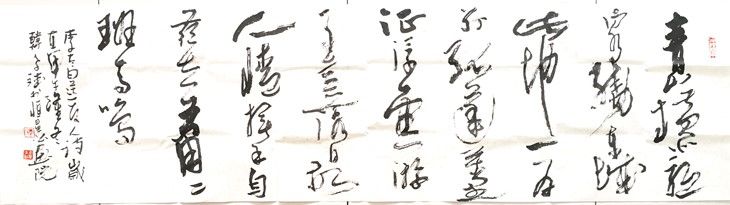 青山橫北郭
白水繞東城
此地一為
別孤蓬萬里
征浮雲游
子意落日故
人情揮手自
茲去蕭〻
班馬鳴
李太白送友人詩歲
韓書於畫院